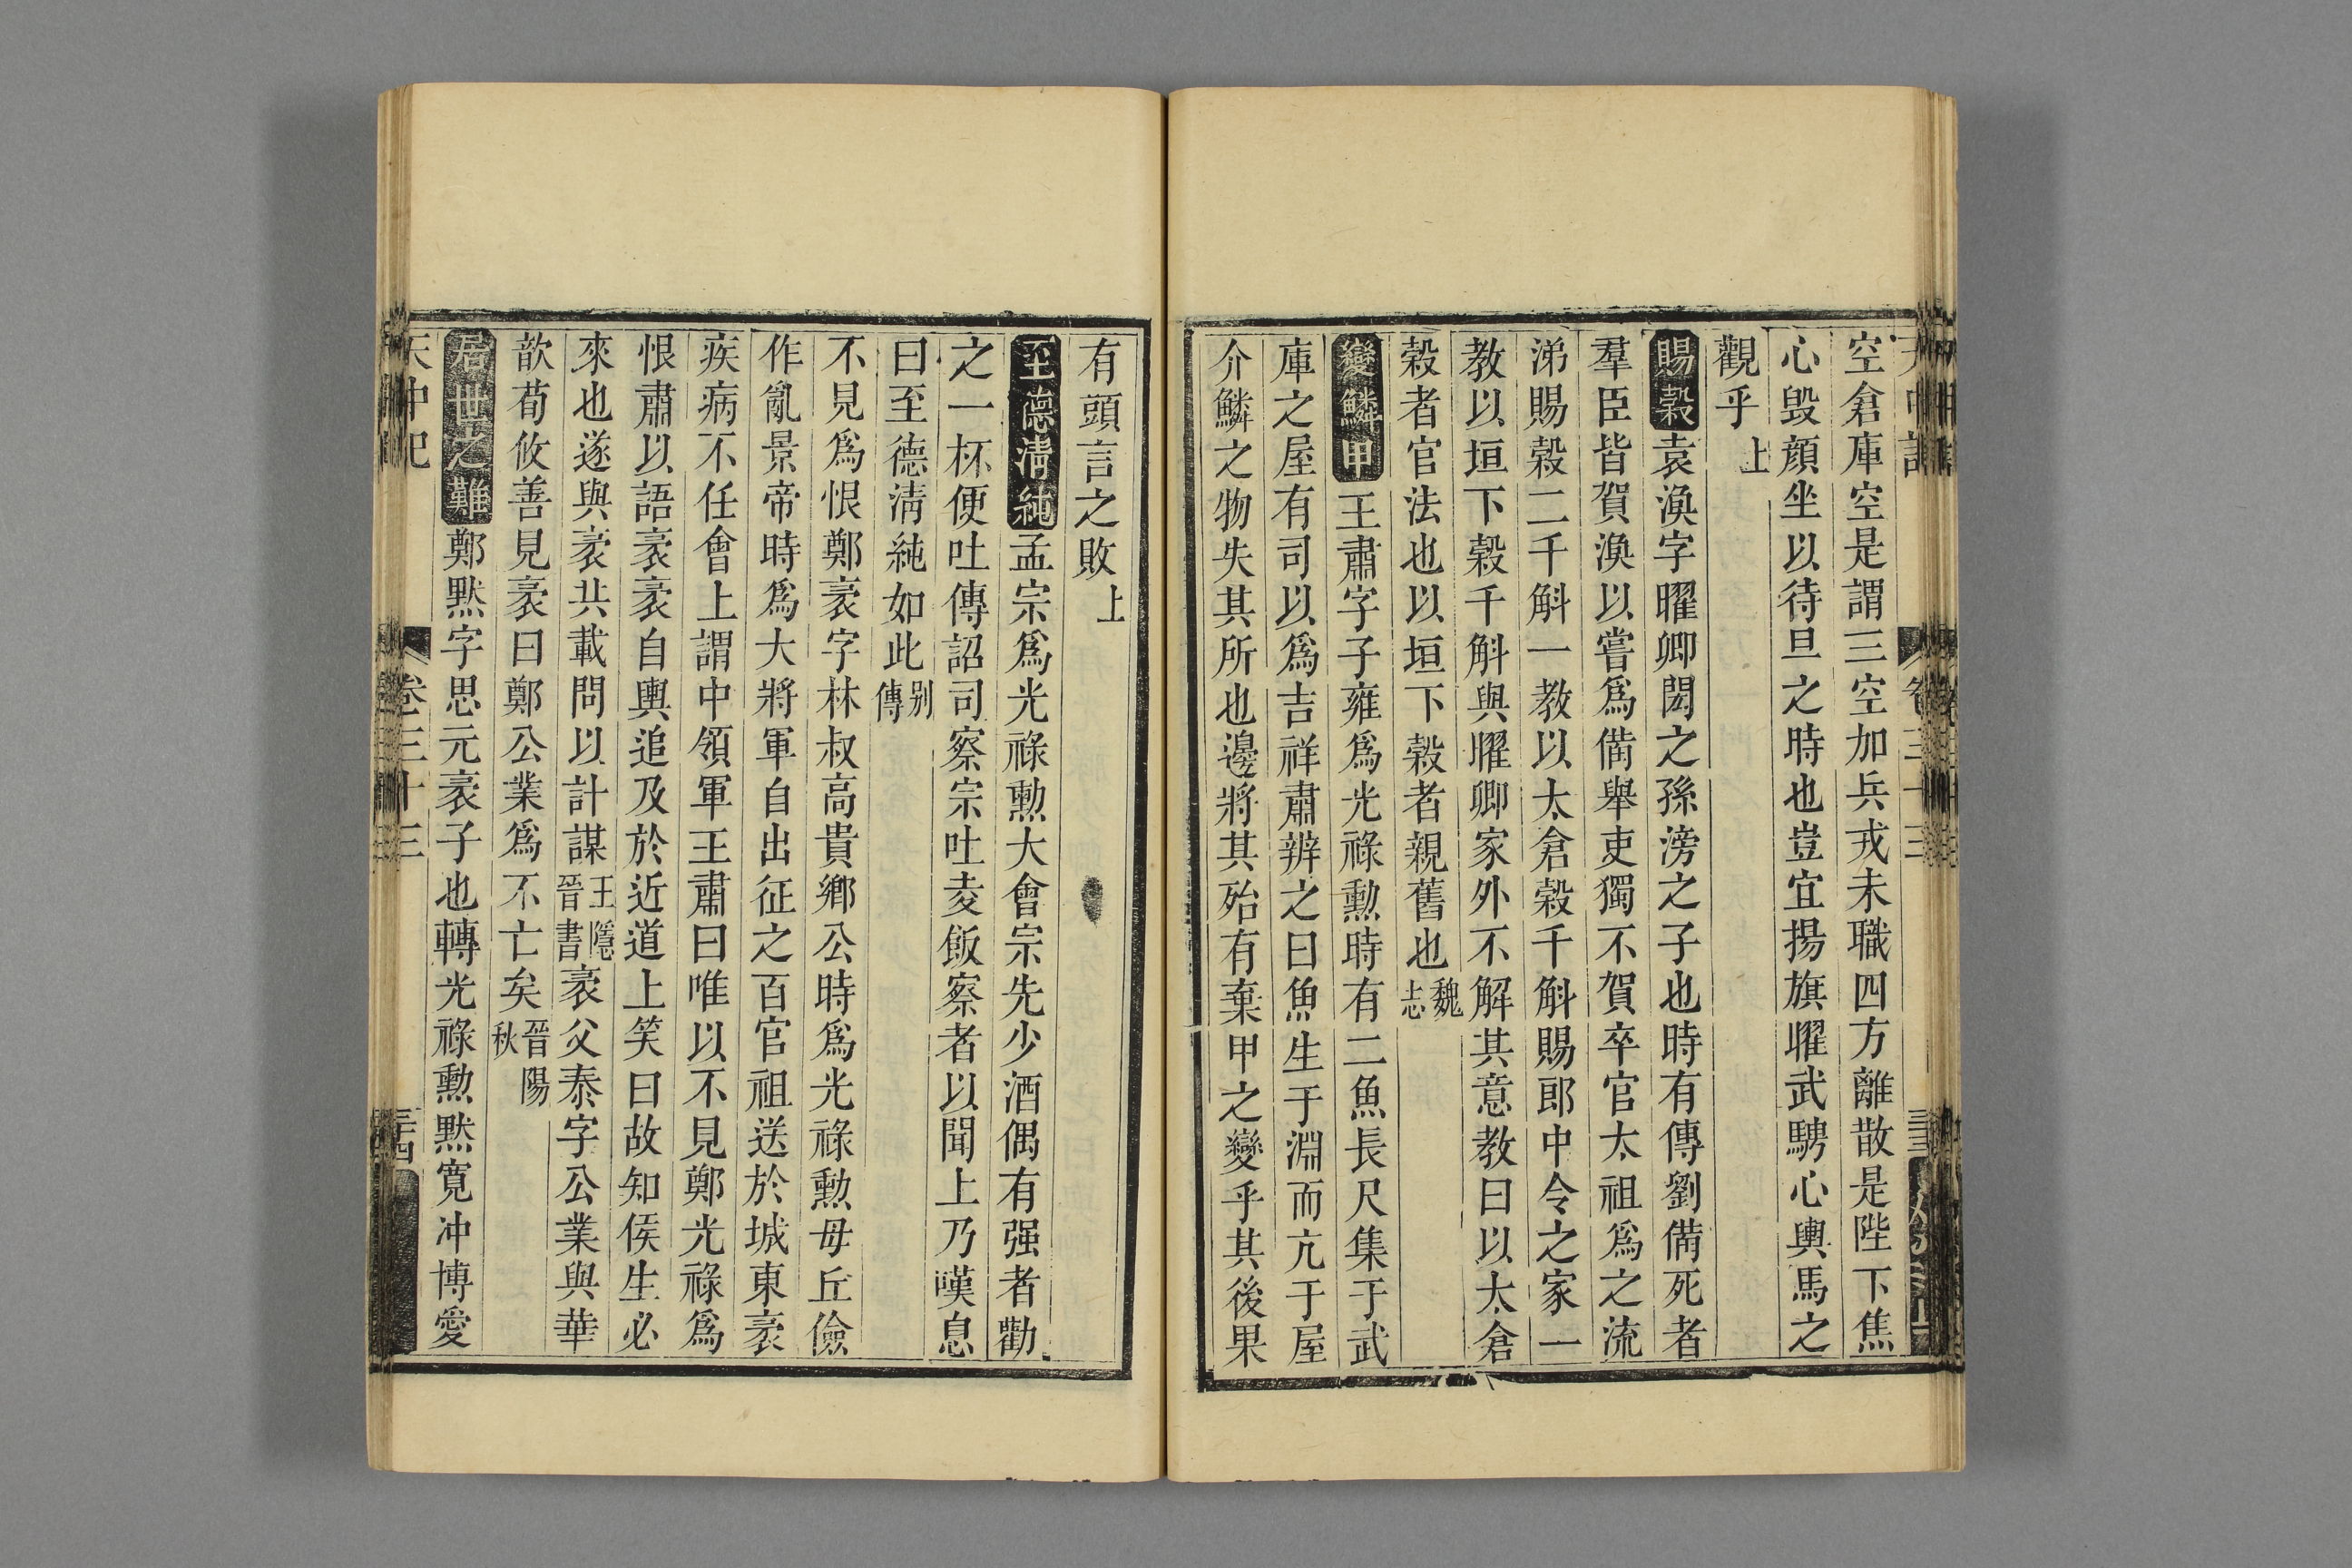 空倉庫空是謂三空加兵戎未職四方離散是陛下焦
心毁顔坐以待旦之時也豈宜揚旗曜武騁心輿馬之
觀乎上
賜穀袁渙字曜卿閎之孫滂之子也時有傳劉備死者
羣臣皆賀渙以嘗爲備舉吏獨不賀卒官太祖爲之流
涕賜穀二千斛一教以太倉穀千斛賜郎中令之家一
教以垣下穀千斛與曜卿家外不解其意教曰以太倉
穀者官法也以垣下穀者親舊也魏志
變鱗甲王肅字子雍爲光祿勳時有二魚長尺集于武
庫之屋有司以爲吉祥肅辨之曰魚生于淵而亢于屋
介鱗之物失其所也邊將其殆有棄甲之變乎其後果
有頭言之敗上
至德清純孟宗爲光祿勳大會宗先少酒偶有强者勸
之一杯便吐傳詔司察宗吐麦飯察者以聞上乃嘆息
曰至德清純如此别傳
不見爲恨鄭袤字林叔高貴鄉公時爲光祿勳毋丘儉
作亂景帝時爲大將軍自出征之百官祖送於城東袤
疾病不任會上謂中領軍王肅曰唯以不見鄭光祿爲
恨肅以語袤袤自輿追及於近道上笑曰故知侯生必
來也遂與袤共載問以計謀王隱晉書袤父泰字公業與華
歆荀攸善見袤曰鄭公業爲不亡矣晉陽秋
居世之難鄭黙字思元袤子也轉光祿勳黙寛冲博愛
天中記 卷三十三